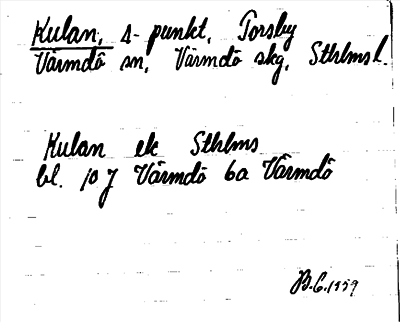 Kulan, Δ-punkt, Torsby
Värmdö sn, Värmdö skg, Sthlms l.
Kulan ek Sthlms
bl. 10 J Värmdö 6a Värmdö
B.G. 1959